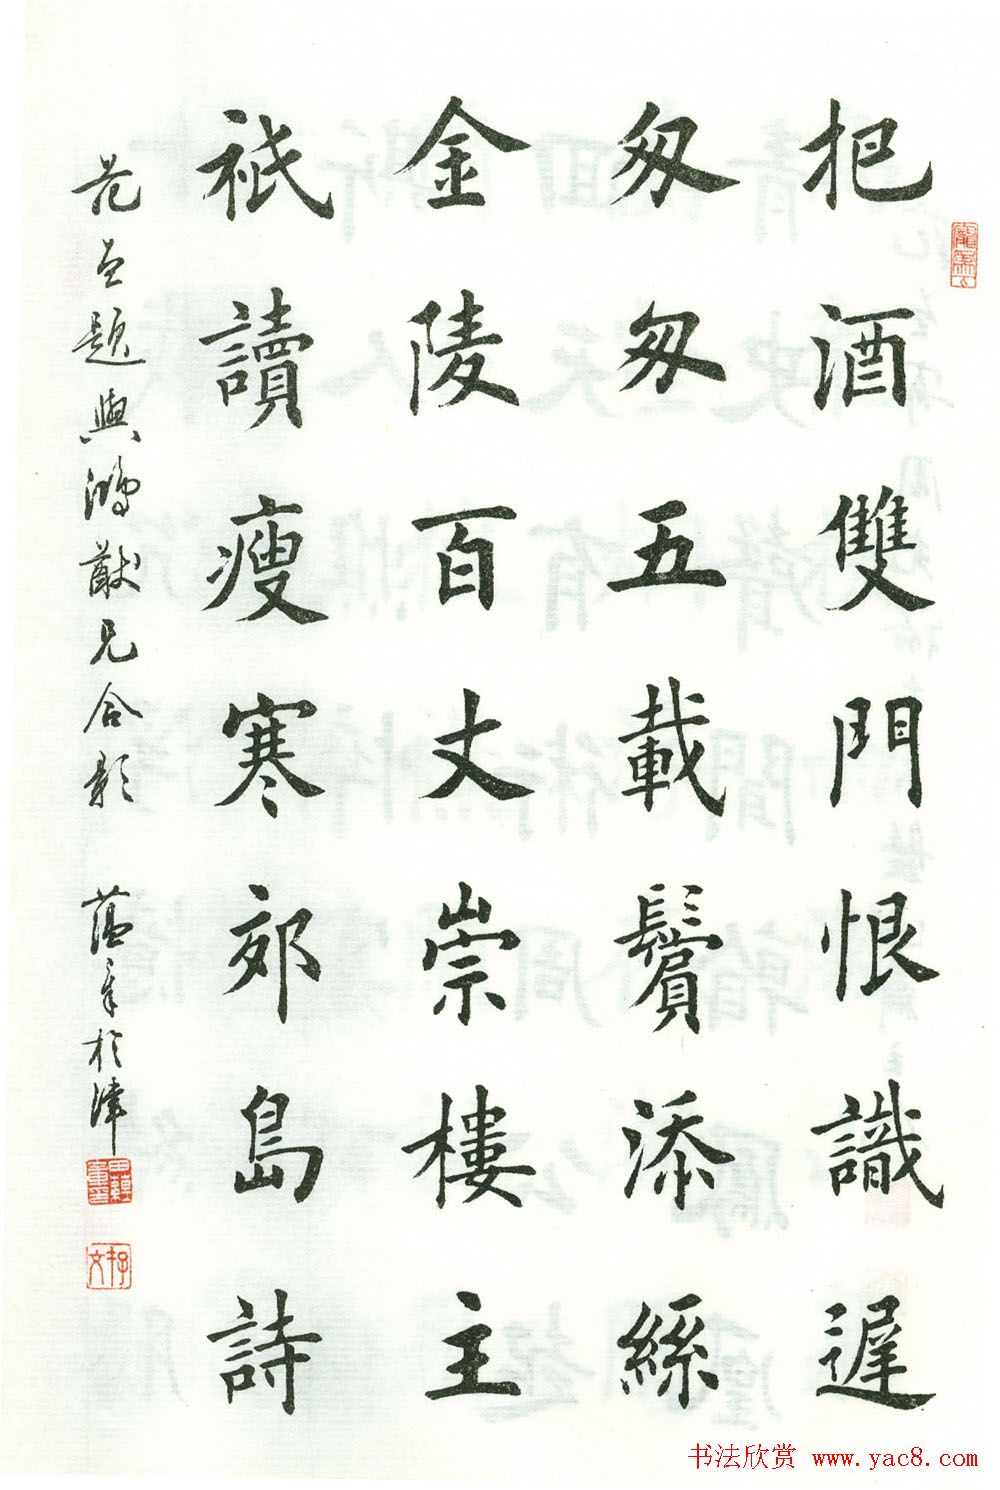 把酒雙門恨識遲
匆匆五載鬢添絲
金陵百丈崇樓主
祇讀瘦寒郊島詩
題與鴻猷兄合影
蘊章於津
书法欣赏 www.yac8.com